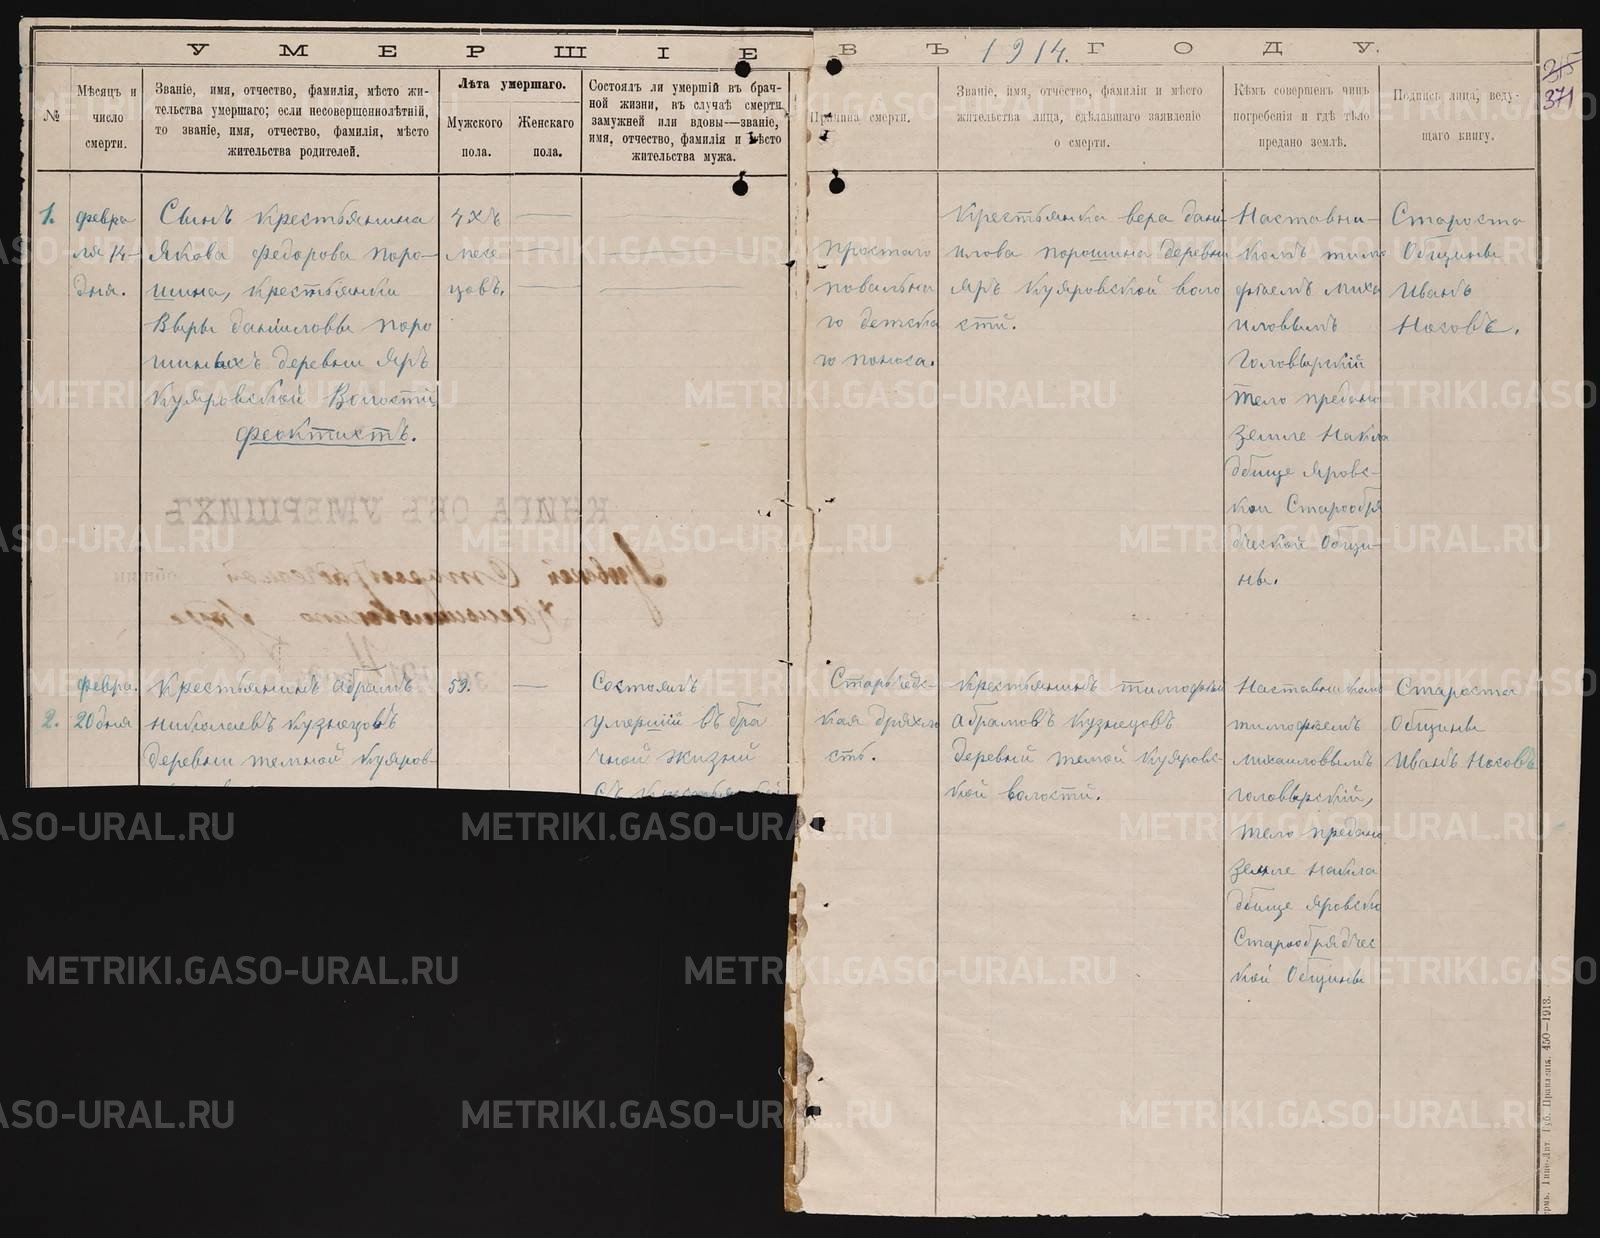 УМЕРШІЕ ВЪ 1914. ГОДУ.
315
371
№
Мѣсяцъ и
число
смерти.
Званіе, имя, отчество, фамилія, мѣсто жи-
тельства умершаго; если несовершеннолѣтній,
то званіе, имя, отчество, фамилія, мѣсто
жительства родителей.
Лѣта умершаго.
Мужского
пола.
Женскаго
пола.
Состоялъ ли умершій въ брач-
ной жизни, въ случаѣ смерти
замужней или вдовы—званіе,
имя, отчество, фамилія и мѣсто
жительства мужа.
Причина смерти.
Званіе, имя, отчество, фамилія и мѣсто
жительства лица, сдѣлавшаго заявленіе
о смерти.
Кѣмъ совершенъ чинъ
погребенія и гдѣ тѣло
предано землѣ.
Подпись лица, веду-
щаго книгу.
1.
февра
ля 14-
дня.
Сынъ крестьянина
Якова Федорова поро-
шина, крестьянки
Веры даниловы поро
шиныхъ деревни Яръ
Куяровской Волости,
феоктистъ.
4хъ
месе
цовъ.
простаго
повально
го детска
го поноса.
Крестьянка вера дани
илова порошина деревни
Яръ Куяровской воло
сти.
Наставни-
комъ тимо
феемъ Миха
иловымъ
Головырскій
тело предано
земле Накла
дбище яровс-
кои Старообря
дческой Общи-
ны.
Староста
Общины
Иванъ
Носовъ.
КНИГА ОБЪ УМЕРШИХЪ
2.
февра.
20 дня
Крестьянинъ Абрамъ
николаевъ кузнецовъ
деревни темной куяров-
59.
Состоялъ
умершій въ бра
чной жизни
Старческ-
кая дряхло
сть.
Крестьянинъ тимофей
Абрамовъ кузнецовъ
деревни темой куяровс-
кой волости.
Наставникомъ
тимофеемъ
михаиловымъ
головырскій,
тело предано
земле Накла
дбище яровско
Старообрядчес
кой Общины
Староста
Общины
Иванъ Носовъ
Пермь. Типо-Лит. Губ. Правленія. 450—1913.
METRIKI.GASO-URAL.RU